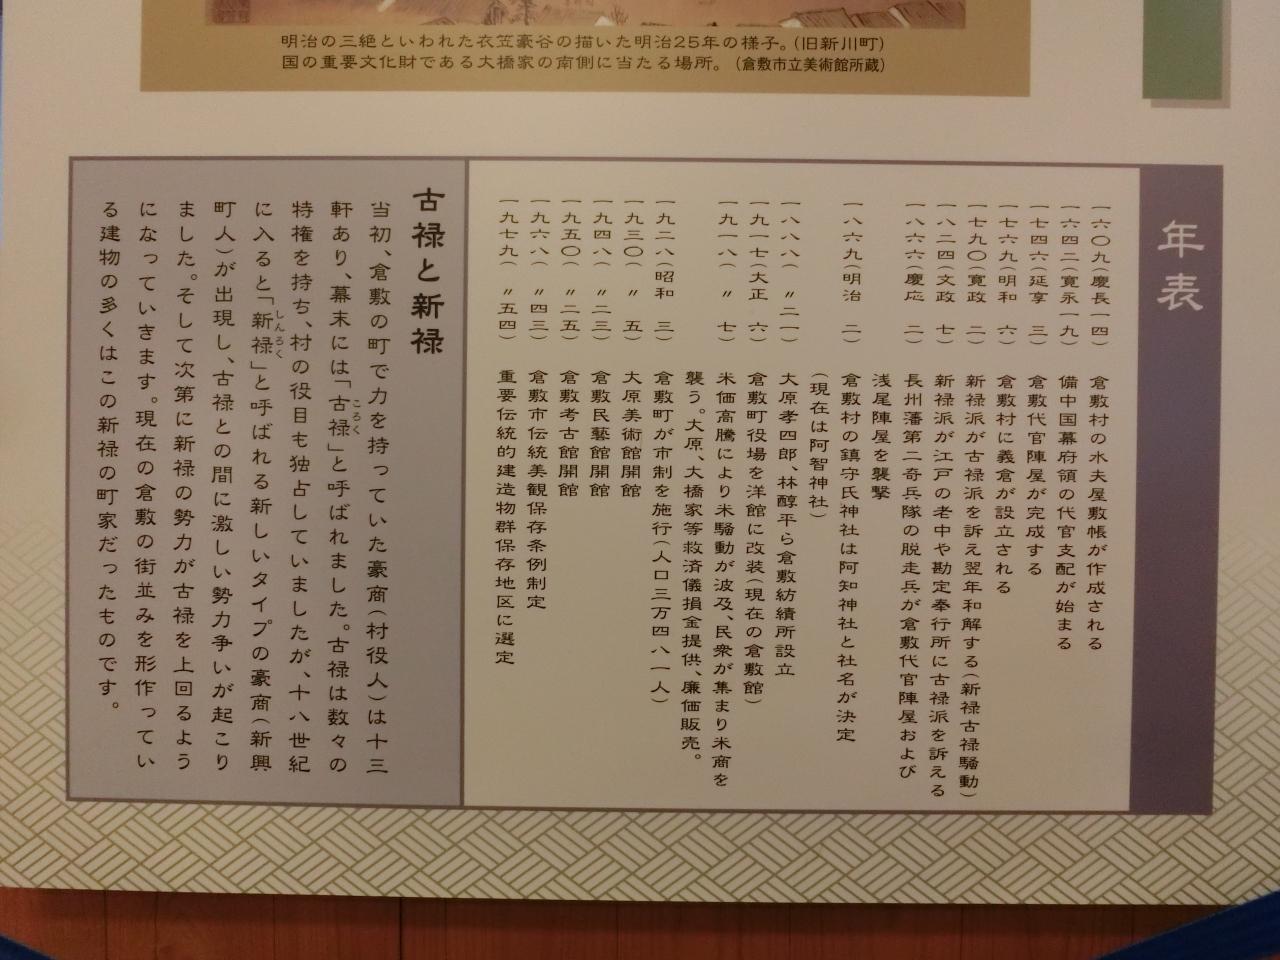 明治の三絶といわれた衣笠豪谷の描いた明治25年の様子。(旧新川町)
国の重要文化財である大橋家の南側に当たる場所。(倉敷市立美術館所蔵)
年表
一六〇九(慶長一四) 倉敷村の水夫屋敷帳が作成される
一六四二(寛永一九) 備中国幕府領の代官支配が始まる
一七四六(延享 三) 倉敷代官陣屋が完成する
一七六九(明和 六) 倉敷村に義倉が設立される
一七九〇(寛政 二) 新禄派が古禄派を訴え翌年和解する(新禄古禄騒動)
一八二四(文政 七) 新禄派が江戸の老中や勘定奉行所に古禄派を訴える
一八六六(慶応 二) 長州藩第二奇兵隊の脱走兵が倉敷代官陣屋および
浅尾陣屋を襲撃
一八六九(明治 二) 倉敷村の鎮守氏神社は阿知神社と社名が決定
(現在は阿智神社)
一八八八( 〃 二一) 大原孝四郎、林醇平ら倉敷紡績所設立
一九一七(大正 六) 倉敷町役場を洋館に改装(現在の倉敷館)
一九一八( 〃 七) 米価高騰により米騒動が波及、民衆が集まり米商を
襲う。大原、大橋家等救済儀損金提供、廉価販売。
一九二八(昭和 三) 倉敷町が市制を施行(人口三万四八一人)
一九三〇( 〃 五) 大原美術館開館
一九四八( 〃 二三) 倉敷民藝館開館
一九五〇( 〃 二五) 倉敷考古館開館
一九六八( 〃 四三) 倉敷市伝統美観保存条例制定
一九七九( 〃 五四) 重要伝統的建造物群保存地区に選定
古禄と新禄
当初、倉敷の町で力を持っていた豪商(村役人)は十三
軒あり、幕末には「古禄」と呼ばれました。古禄は数々の
ころく
特権を持ち、村の役目も独占していましたが、十八世紀
に入ると「新禄」と呼ばれる新しいタイプの豪商(新興
しんろく
町人)が出現し、古禄との間に激しい勢力争いが起こり
ました。そして次第に新禄の勢力が古禄を上回るよう
になっていきます。現在の倉敷の街並みを形作ってい
る建物の多くはこの新禄の町家だったものです。